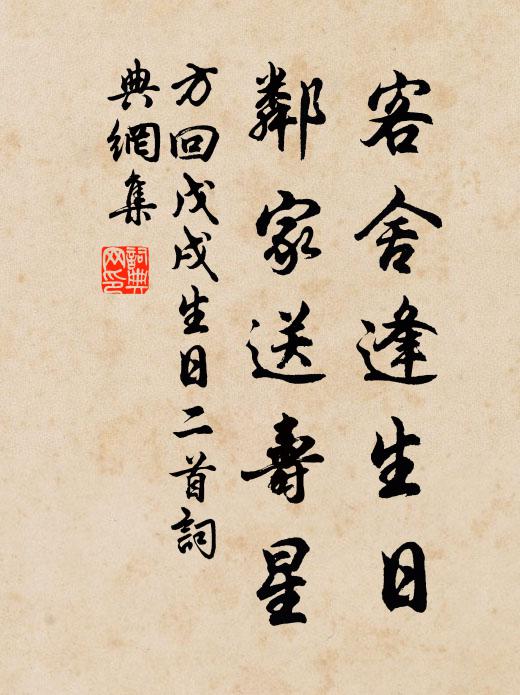 客舍逢生日
鄰家送壽星
方回戊戌生日二首詞
典網集
詞典
网印